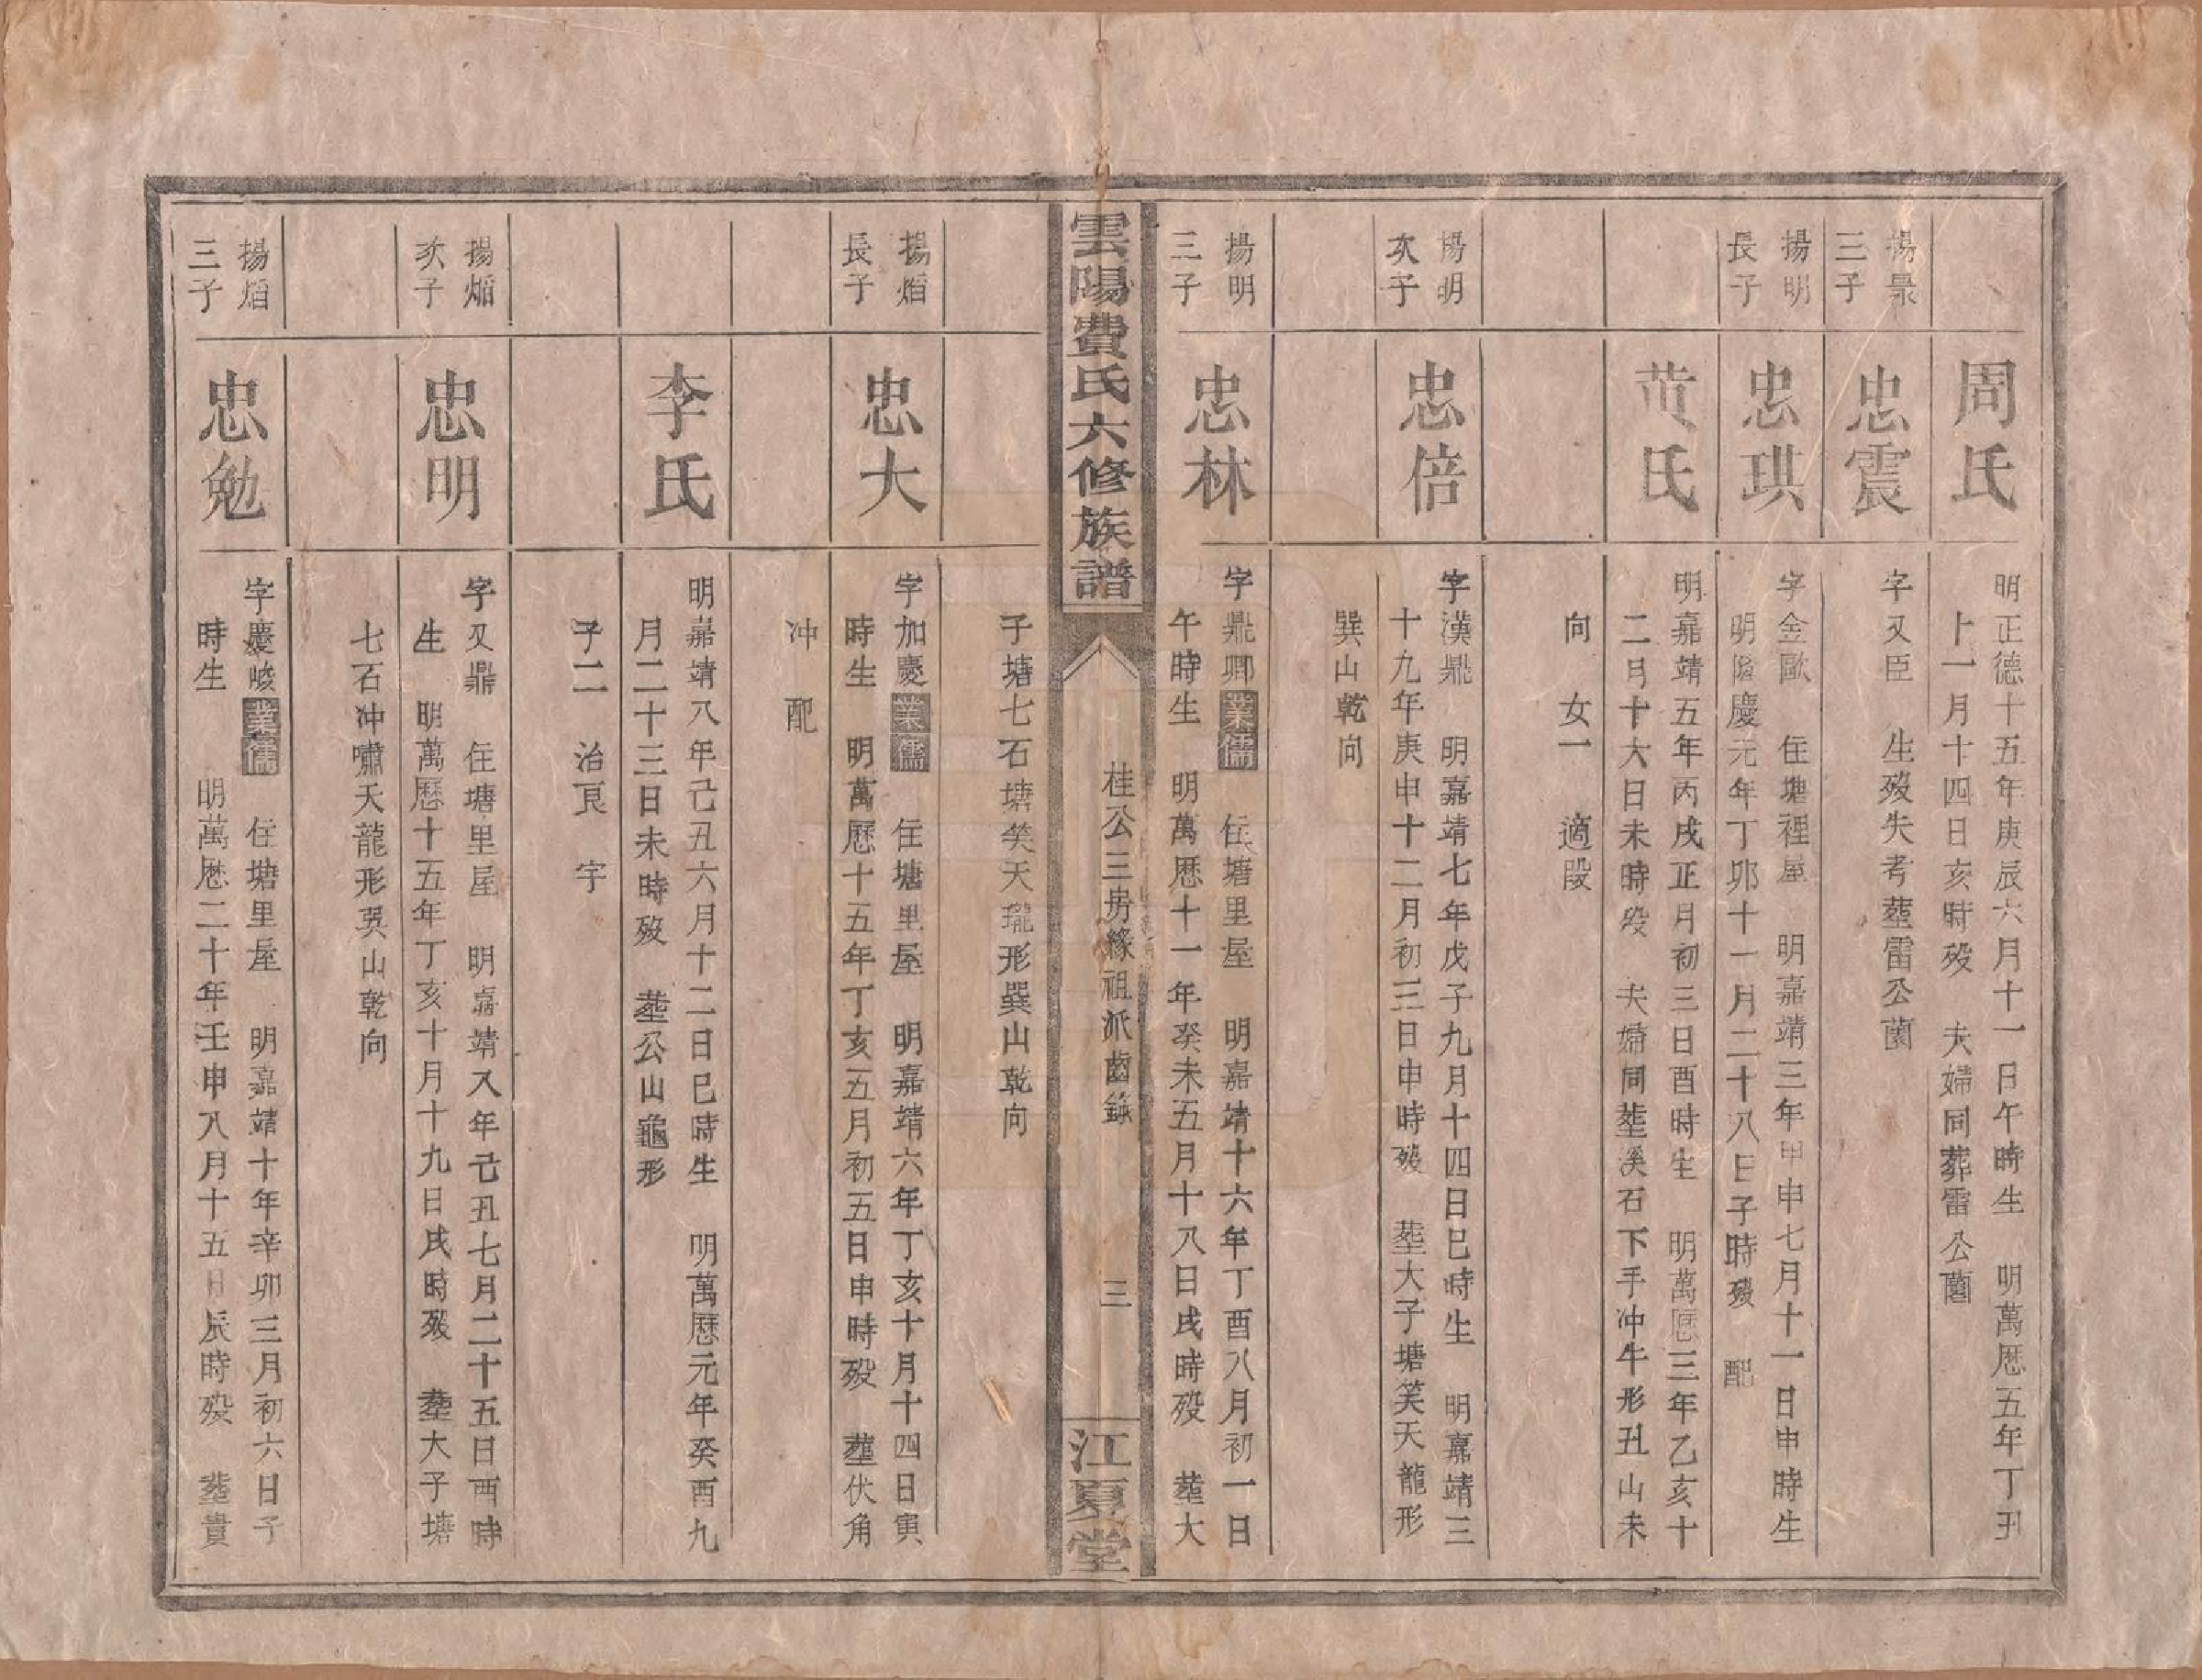 周氏
明正德十五年庚辰六月十一日午時生　明萬厯五年丁丑
十一月十四日亥時殁　夫婦同葬雷公薗
揚景
三子
忠震
字又臣　生殁失考塟雷公薗
揚明
長子
忠琪
字金歐　住塘裡屋　明嘉靖三年甲申七月十一日申時生
明隆慶元年丁卯十一月二十八日子時殁　配
黄氏
明嘉靖五年丙戌正月初三日酉時生　明萬厯三年乙亥十
二月十六日未時殁　夫婦同塟溪石下手冲牛形丑山未
向　女一　適段
揚明
次子
忠倍
字漢鼎　明嘉靖七年戊子九月十四日巳時生　明嘉靖三
十九年庚申十二月初三日申時殁　塟大子塘笑天龍形
巽山乾向
揚明
三子
忠林
字鼎卿業儒　住塘里屋　明嘉靖十六年丁酉八月初一日
午時生　明萬厯十一年癸未五月十八日戌時殁　塟大
雲陽費氏六修族譜
桂公三房緣祖派齒錄
三
江夏堂
子塘七石塘笑天瓏形巽山乾向
揚烜
長子
忠大
字加慶業儒　住塘里屋　明嘉靖六年丁亥十月十四日寅
時生　明萬厯十五年丁亥五月初五日申時殁　塟伏角
冲　配
李氏
明嘉靖八年己丑六月十二日巳時生　明萬厯元年癸酉九
月二十三日未時殁　塟公山龜形
子二　治良　宇
揚烜
次子
忠明
字又鼎　住塘里屋　明嘉靖八年己丑七月二十五日酉時
生　明萬厯十五年丁亥十月十九日戌時殁　塟大子塘
七石冲嘯天龍形巽山乾向
揚烜
三子
忠勉
字慶峻業儒　住塘里屋　明嘉靖十年辛卯三月初六日子
時生　明萬厯二十年壬申八月十五日辰時殁　塟貴